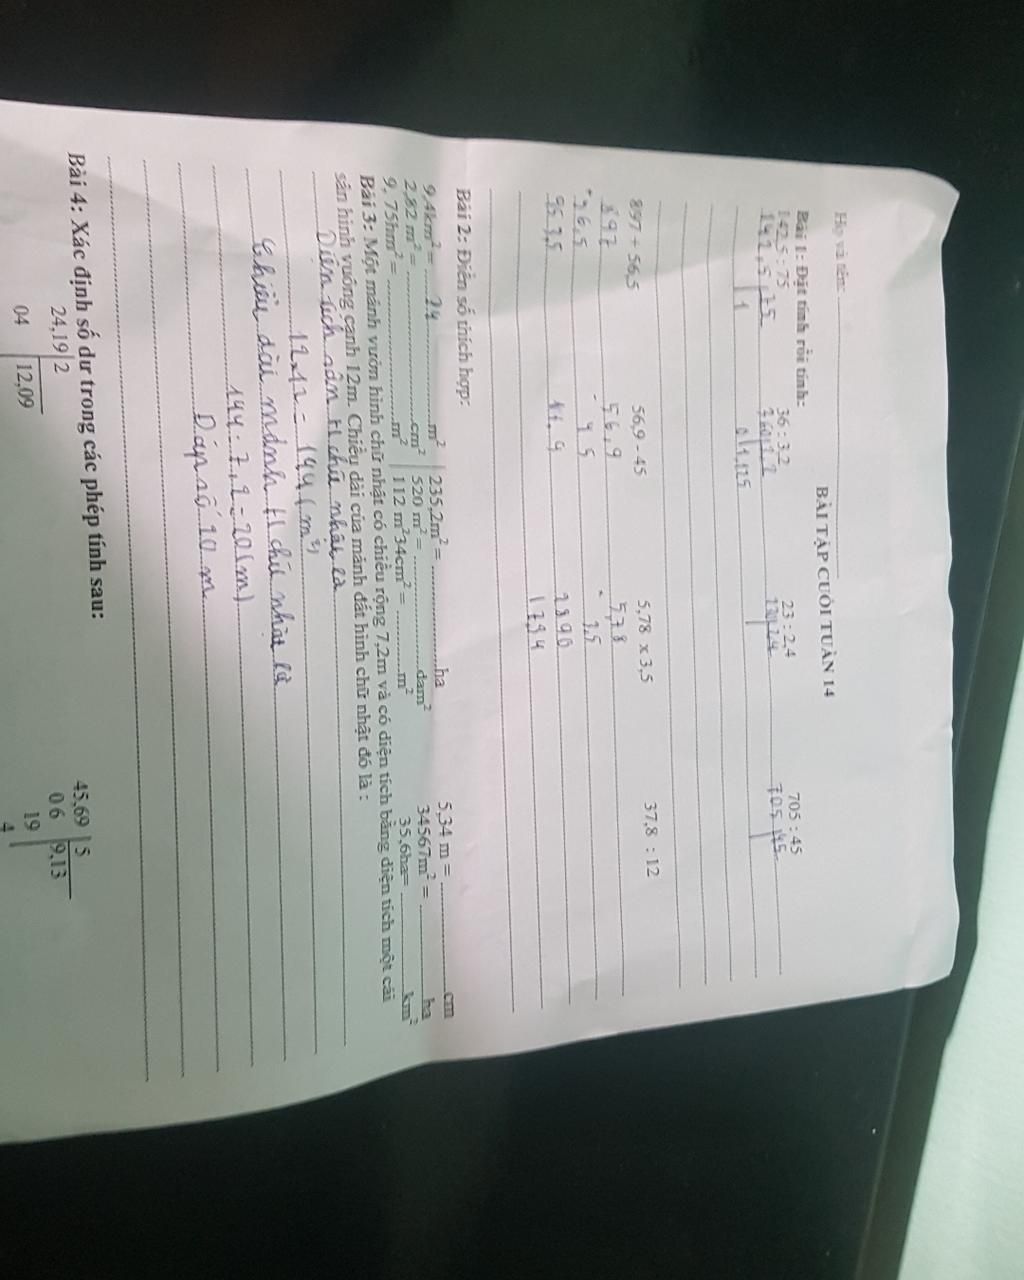 Họ và tên:
BÀI TẬP CUỐI TUẦN 14
Bài 1: Đặt tính rồi tính:
142,5 : 75 36 : 3.2 23 : 2,4 705 : 45
142,5 75 360 705 45
1 0 1,125
897 + 56,5 56,9 - 45 5,78 x 3,5 37,8 : 12
897 56,9 5,78
- 45 3,5
95 3,5 11.9 2890
1734
Bài 2: Điền số thích hợp:
9,4km² = ...m² 235,2m² = ...ha 5,34 m = ...cm
2,82 m² = ...cm² 520 m² = ...dam² 34567m² = ...ha
9, 75hm² = ...m² 112 m²34cm² = ...m² 35,6ha= ...km²
Bài 3: Một mảnh vườn hình chữ nhật có chiều rộng 7,2m và có diện tích bằng diện tích một cái
sân hình vuông cạnh 12m. Chiều dài của mảnh đất hình chữ nhật đó là :
Diện tích sân H chữ nhật là
12x12 = 144 (m²)
Chiều dài mảnh H chữ nhật là
144 : 7,2 = 20 (m)
Đáp số 20 m
Bài 4: Xác định số dư trong các phép tính sau:
24,19 2 45,69 5
04 12,09 0 6 9,13
19
4